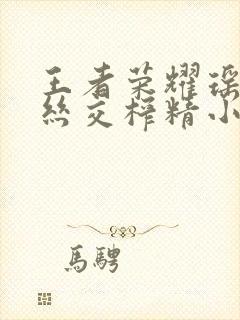 王者荣耀瑶
丝交榨精小
馬騁